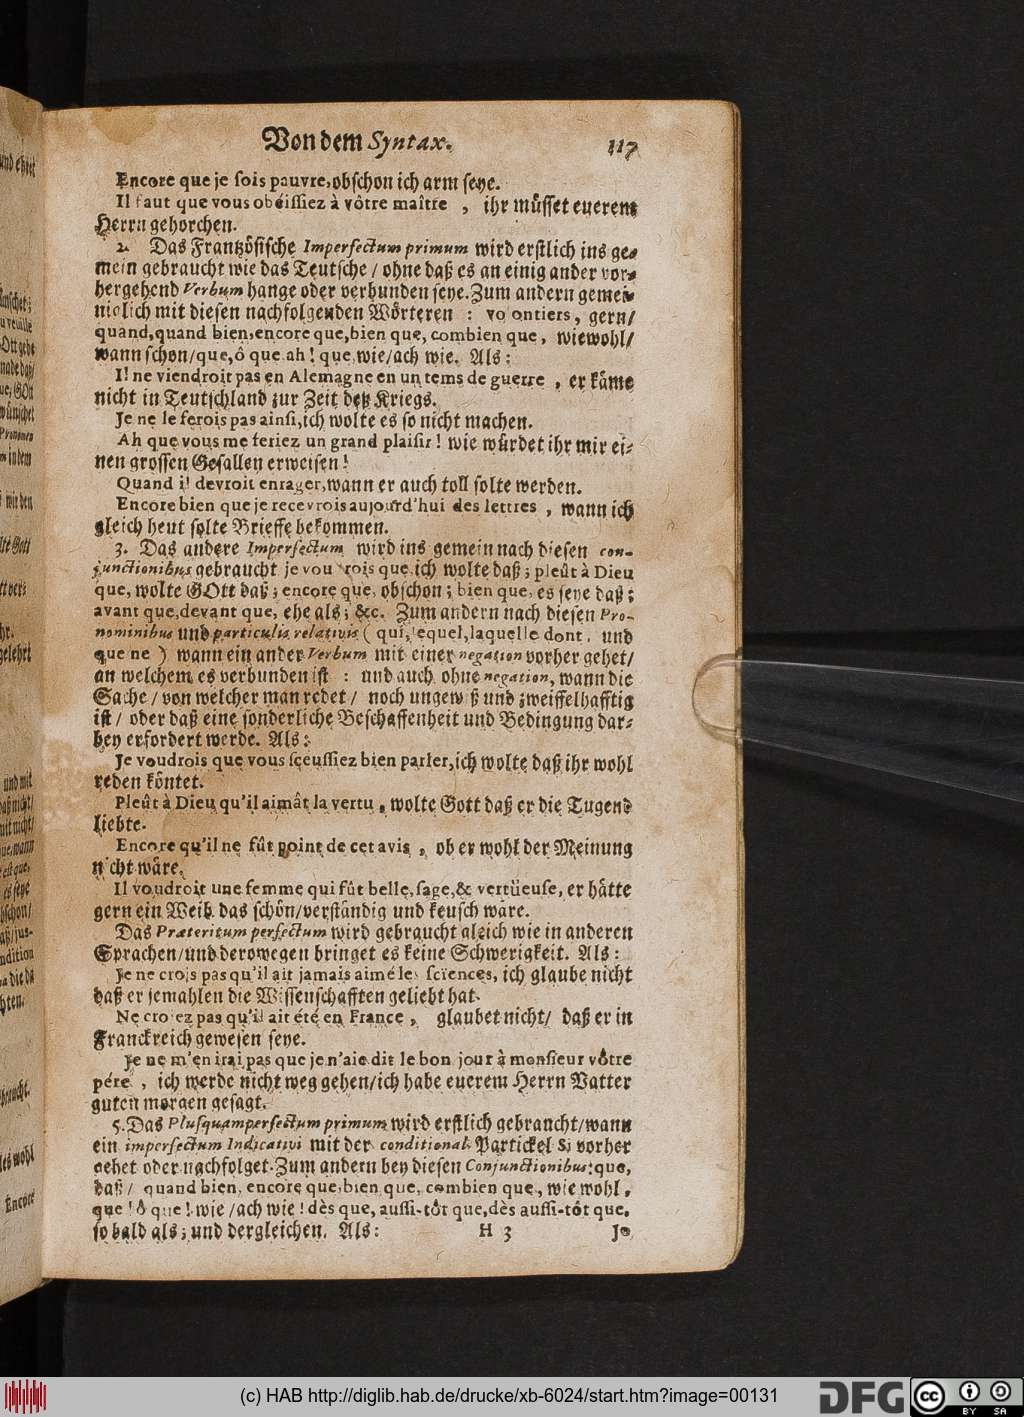 Von dem Syntax. 117
Encore que je sois pauvre, obschon ich arm seye.
Il faut que vous obéissiez à vôtre maître, ihr müsset euerem
Herrn gehorchen.
2. Das Frantzösische Imperfectum primum wird erstlich ins ge-
mein gebraucht wie das Teutsche / ohne daß es an einig ander vor-
hergehend Verbum hange oder verbunden seye. Zum andern gemei-
niglich mit diesen nachfolgenden Wörteren : volontiers, gern/
quand, quand bien, encore que, bien que, combien que, wiewohl/
wann schon/ que, ô que ah! que, wie/ ach wie. Als:
Il ne viendroit pas en Alemagne en un tems de guerre, er käme
nicht in Teutschland zur Zeit deß Kriegs.
Je ne le ferois pas ainsi, ich wolte es so nicht machen.
Ah que vous me feriez un grand plaisir! wie würdet ihr mir ei-
nen grossen Gefallen erweisen!
Quand il devroit enrager, wann er auch toll solte werden.
Encore bien que je recevrois aujourd'hui des lettres, wann ich
gleich heut solte Brieffe bekommen.
3. Das andere Imperfectum wird ins gemein nach diesen con-
junctionibus gebraucht je voudrois que ich wolte daß; pleût à Dieu
que, wolte GOtt daß; encore que, obschon; bien que, es seye daß;
avant que, devant que, ehe als; &c. Zum andern nach diesen Pro-
nominibus und particulis relativis (qui, lequel, laquelle dont, und
que ne) wann ein ander Verbum mit einer negation vorher gehet/
an welchem es verbunden ist : und auch ohne negation, wann die
Sache / von welcher man redet / noch ungewiß und zweiffelhafftig
ist / oder daß eine sonderliche Beschaffenheit und Bedingung dar-
bey erfordert werde. Als:
Je voudrois que vous sçeussiez bien parler, ich wolte daß ihr wohl
reden köntet.
Pleût à Dieu qu'il aimât la vertu, wolte Gott daß er die Tugend
liebte.
Encore qu'il ne fût point de cet avis, ob er wohl der Meinung
nicht wäre.
Il voudroit une femme qui fût belle, sage, & vertüeuse, er hätte
gern ein Weib das schön/ verständig und keusch wäre.
Das Præteritum perfectum wird gebraucht gleich wie in anderen
Sprachen/ und derowegen bringet es keine Schwerigkeit. Als:
Je ne crois pas qu'il ait jamais aimé les sciences, ich glaube nicht
daß er jemahlen die Wissenschafften geliebt hat.
Ne croiez pas qu'il ait été en France, glaubet nicht/ daß er in
Franckreich gewesen seye.
Je ne m'en irai pas que je n'aie dit le bon jour à monsieur vôtre
pére, ich werde nicht weg gehen/ ich habe euerem Herrn Vatter
guten morgen gesagt.
5. Das Plusquamperfectum primum wird erstlich gebraucht/ wann
ein imperfectum Indicativi mit der conditional Partickel Si vorher
gehet oder nachfolget. Zum andern bey diesen Conjunctionibus: que,
daß / quand bien, encore que, bien que, combien que, wie wohl,
que! ô que! wie / ach wie! dès que, aussi-tôt que, dès aussi-tôt que,
so bald als; und dergleichen. Als:
H 3 Je
(c) HAB http://diglib.hab.de/drucke/xb-6024/start.htm?image=00131
DFG
cc BY SA